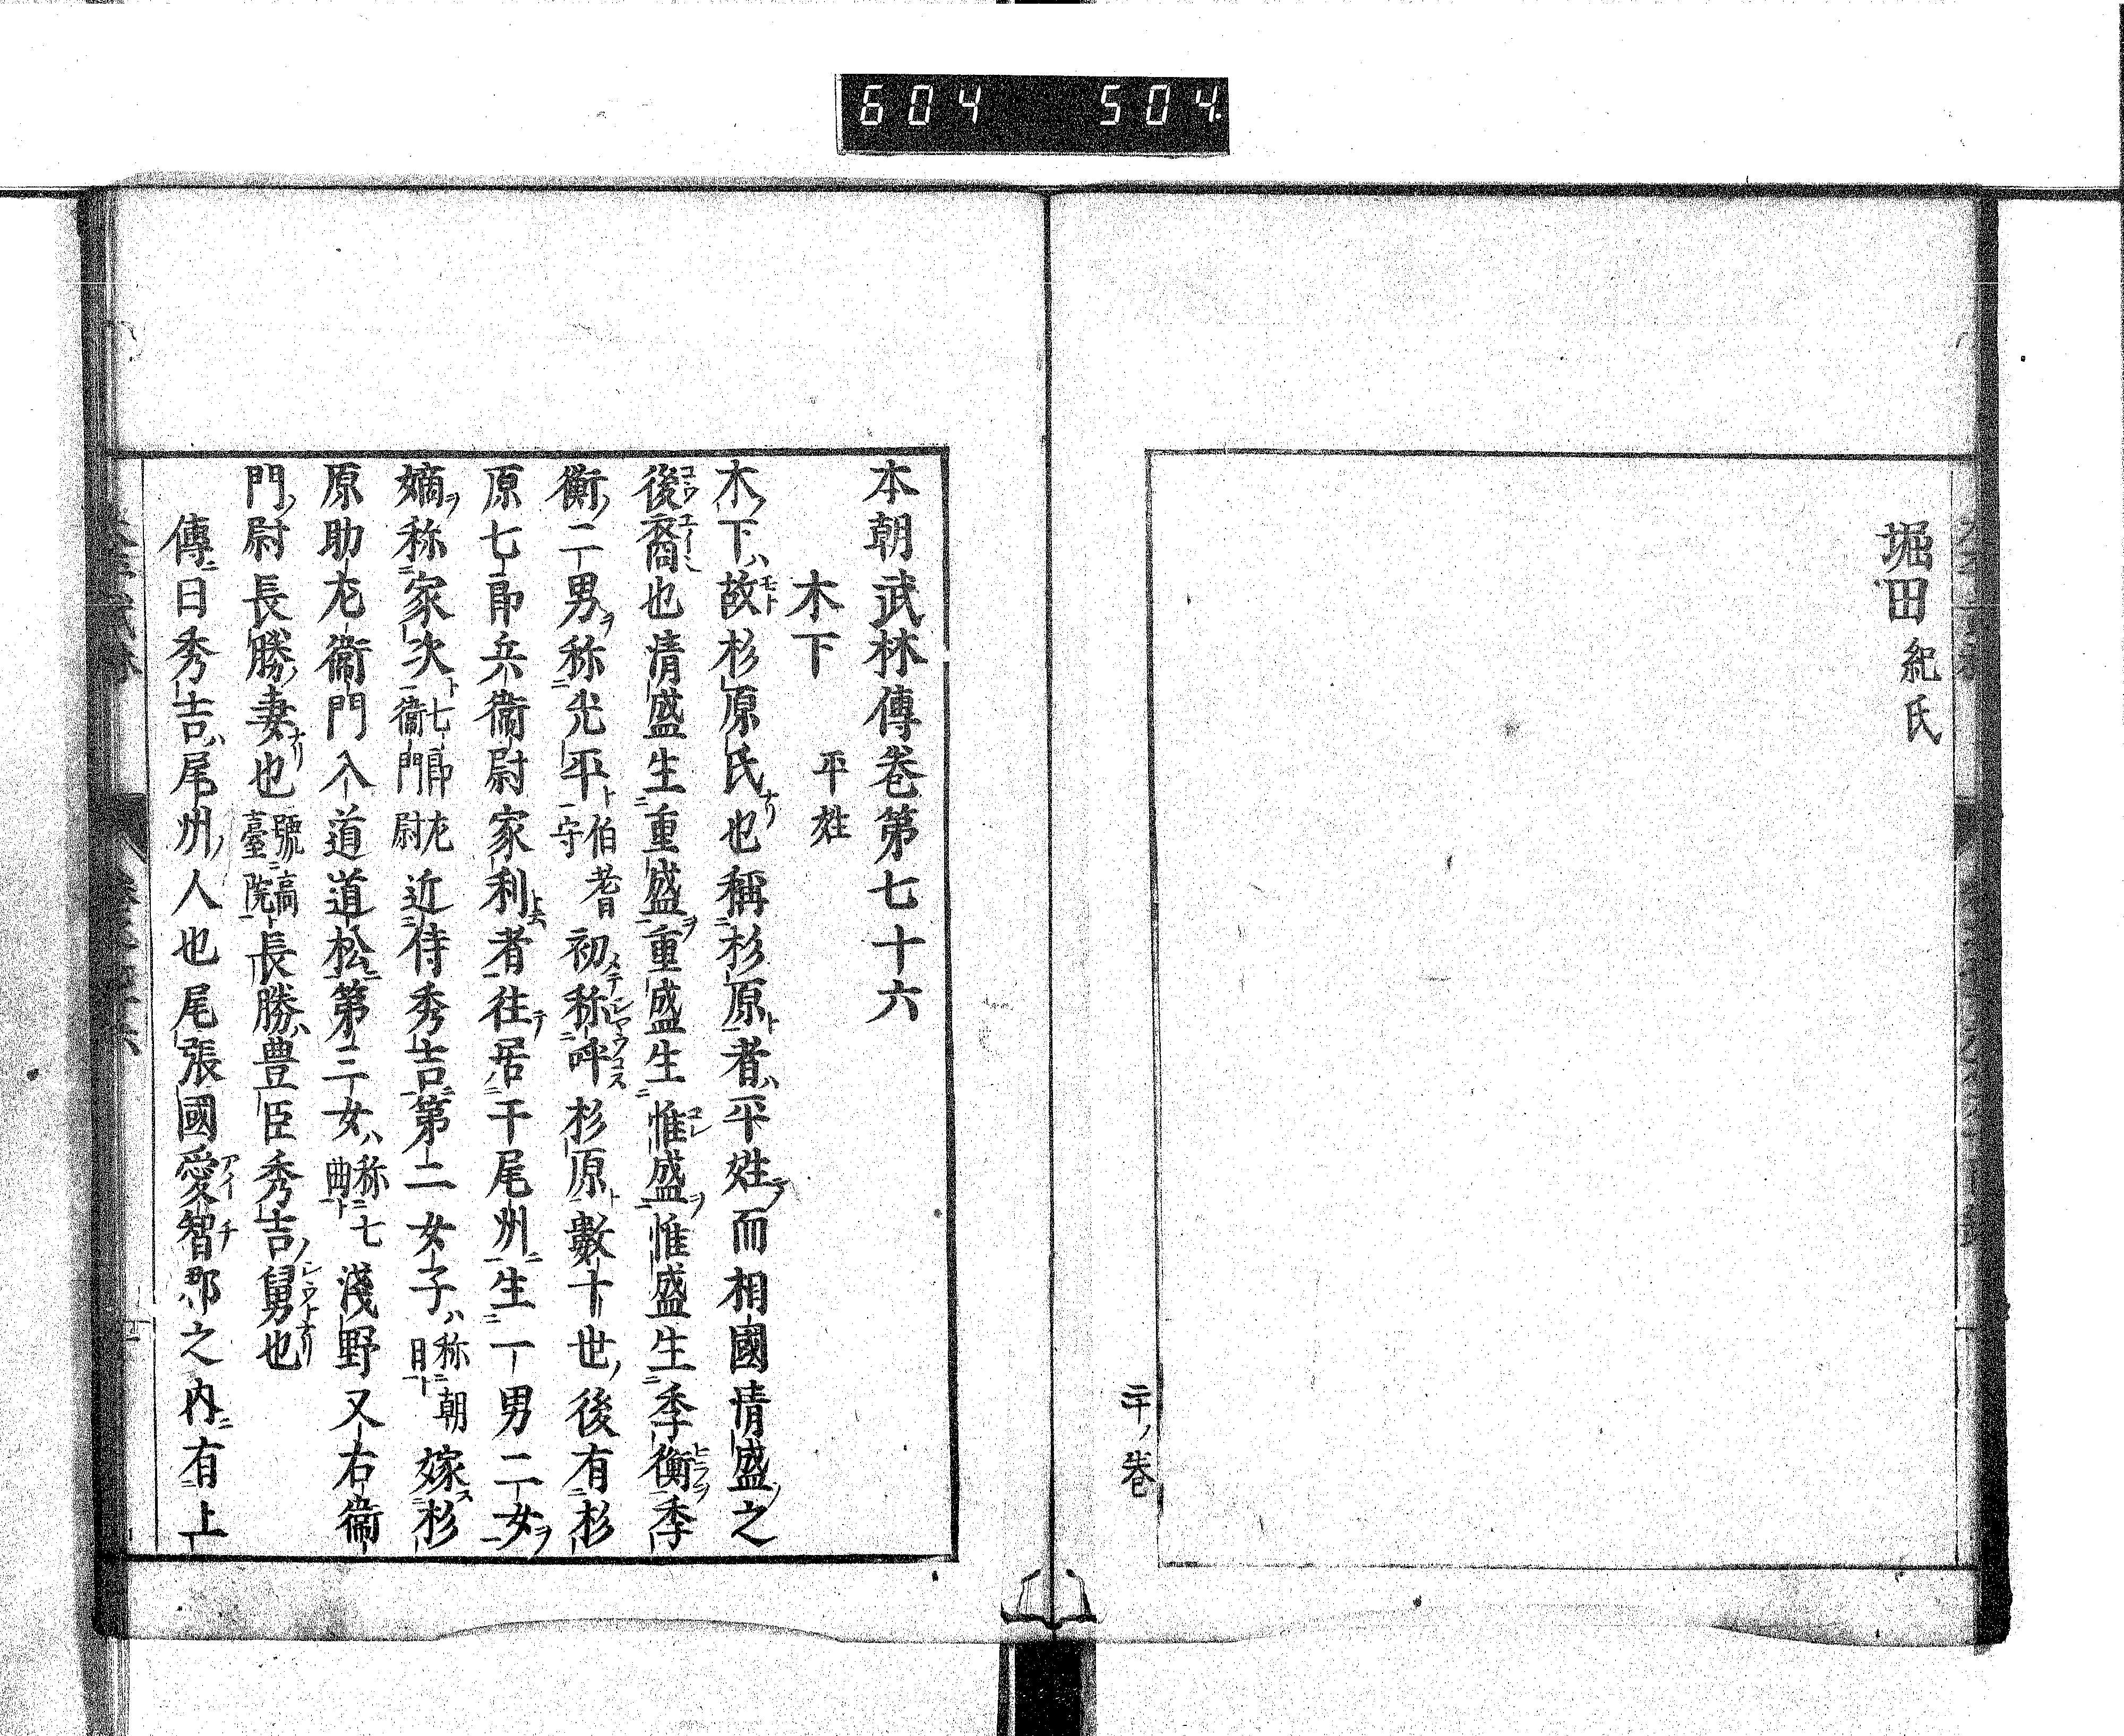 604 504
堀田 紀氏
二十ノ巻
本朝武林傳巻第七十六
木下 平姓
木下ハ故杉原氏也稱杉原者ハ平姓而相國清盛之
後裔也清盛生重盛重盛生惟盛惟盛生季衡季
衡二男称光平伯耆守初称呼杉原數十世後有杉
原七郎兵衞尉家利者往居于尾州生一男二女
嫡称家次七郎左衞門尉近侍秀吉第二女子ハ称朝日嫁杉
原助左衞門入道道松第三女ハ称七曲淺野又右衞
門尉長勝妻也號高臺院長勝ハ豊臣秀吉舅也
傳曰秀吉ハ尾州人也尾張國愛智郡之内有上